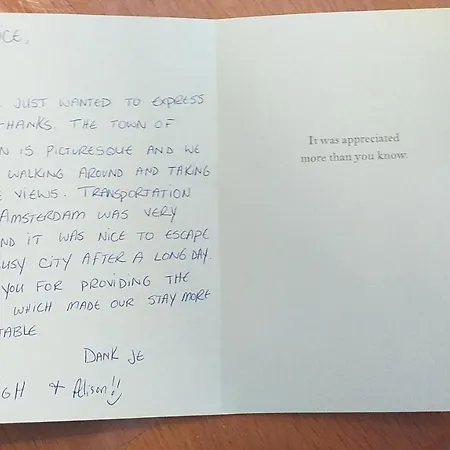 JUST WANTED TO EXPRESS
THANKS. THE TOWN OF
IS PICTURESQUE AND WE
WALKING AROUND AND TAKING
VIEWS. TRANSPORTATION
AMSTERDAM WAS VERY
AND IT WAS NICE TO ESCAPE
CITY AFTER A LONG DAY.
YOU FOR PROVIDING THE
WHICH MADE OUR STAY MORE
DANK JE
+ Alison!!
It was appreciated
more than you know.